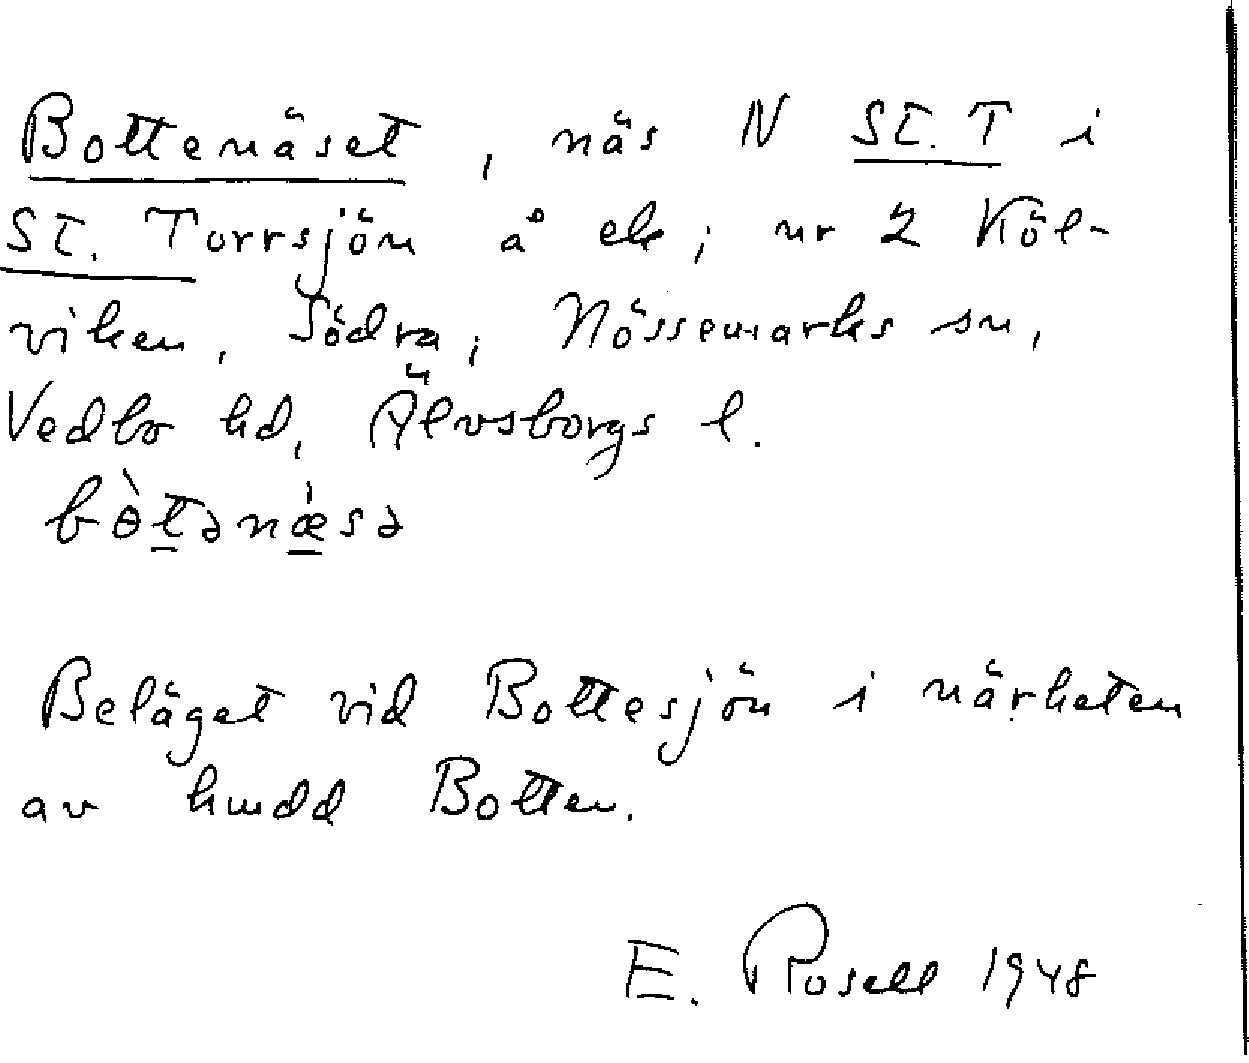 Bottenäset, näs N St. T i
St. Torrsjön å ek; nr 2 Köl-
viken, Södra, Nössemarks sn,
Vedbo hd, Älvsborgs l.
bòtənæ̀sə
Beläget vid Bottesjön i närheten
av hmdd Botten.
E. Rosell 1948